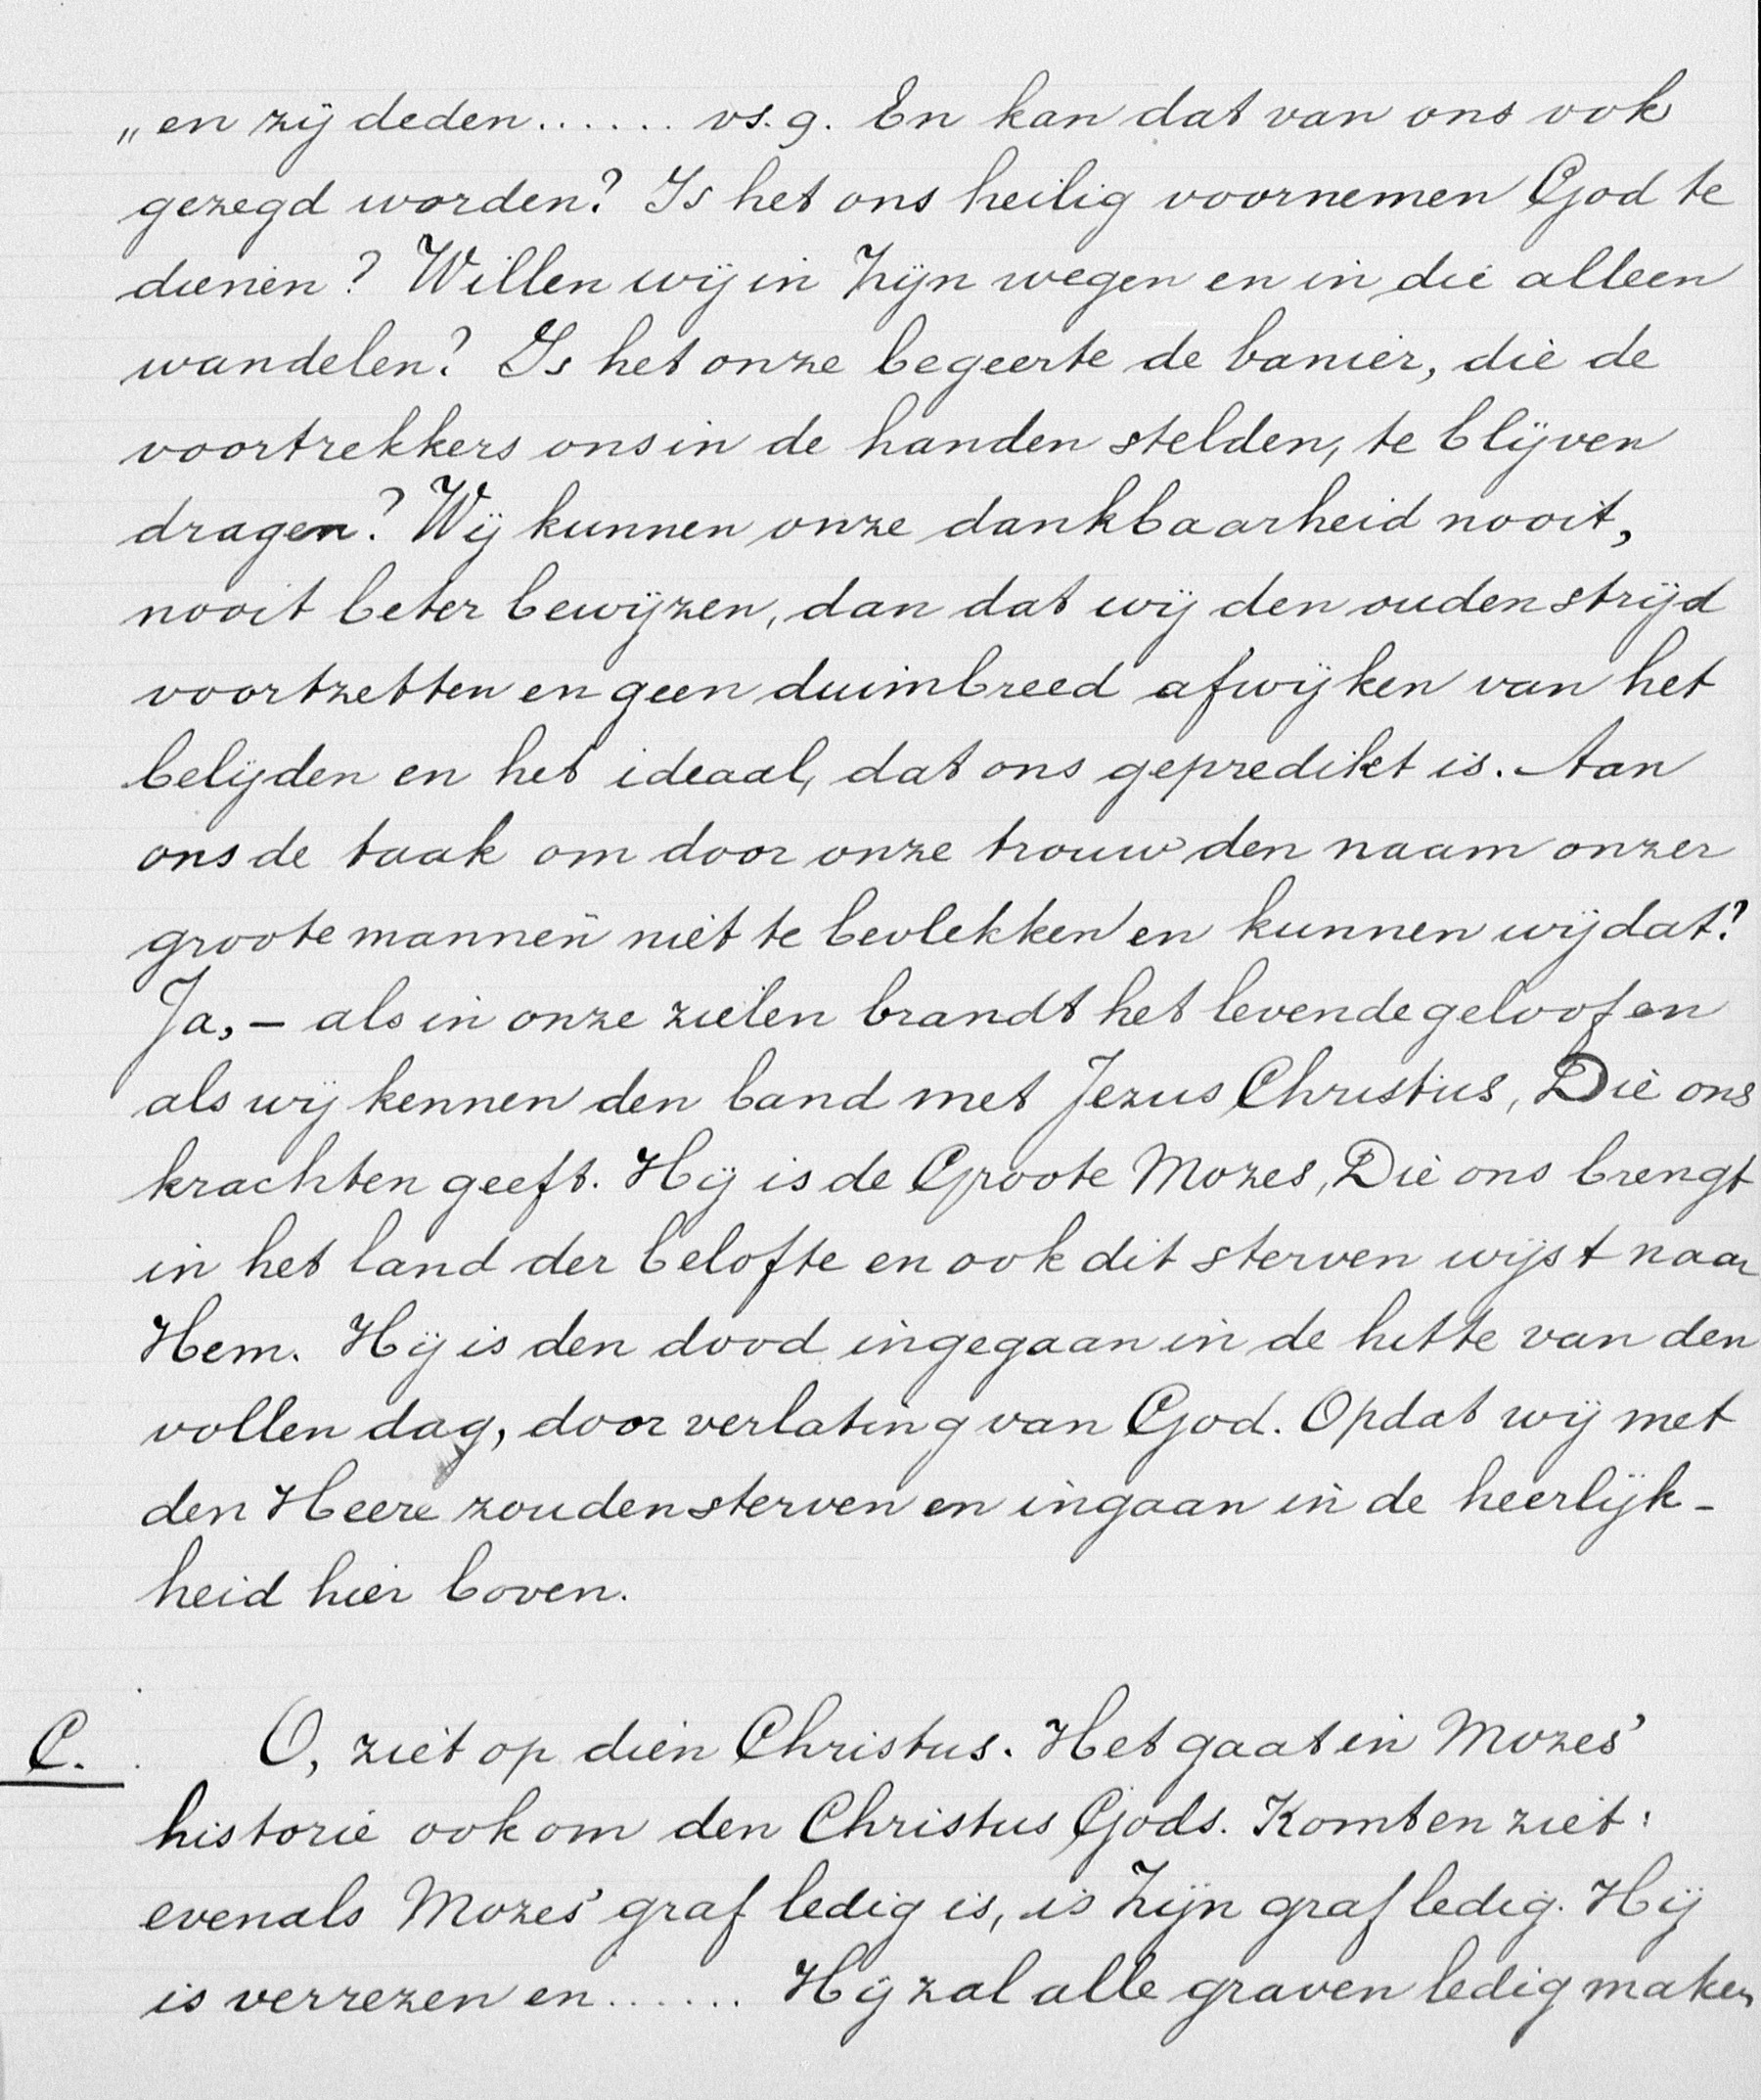 „en zij deden...... vs. 9. En kan dat van ons ook
gezegd worden? Is het ons heilig voornemen God te
dienen? Willen wij in Zijn wegen en in die alleen
wandelen? Is het onze begeerte de banier, die de
voortrekkers ons in de handen stelden, te blijven
dragen? Wij kunnen onze dankbaarheid nooit,
nooit beter bewijzen, dan dat wij den ouden strijd
voortzetten en geen duimbreed afwijken van het
belijden en het ideaal, dat ons gepredikt is. Aan
ons de taak om door onze trouw den naam onzer
groote mannen niet te bevlekken en kunnen wij dat?
Ja, – als in onze zielen brandt het levende geloof en
als wij kennen den band met Jezus Christus, Die ons
krachten geeft. Hij is de Groote Mozes, Die ons brengt
in het land der belofte en ook dit sterven wijst naar
Hem. Hij is den dood ingegaan in de hitte van den
vollen dag, door verlating van God. Opdat wij met
den Heere zouden sterven en ingaan in de heerlijk-
heid hier boven.
C. O, ziet op dien Christus. Het gaat in Mozes'
historie ook om den Christus Gods. Komt en ziet:
evenals Mozes' graf ledig is, is Zijn graf ledig. Hij
is verrezen en...... Hij zal alle graven ledig maken